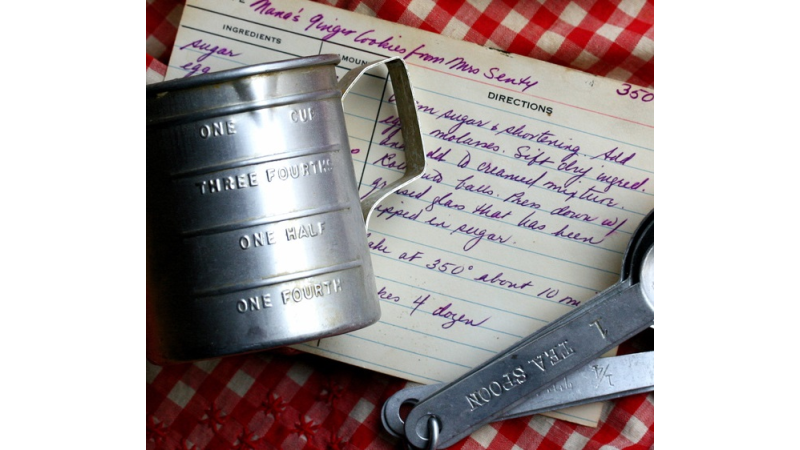 Mana's Ginger Cookies from Mrs Senty
350
INGREDIENTS
AMOUN
DIRECTIONS
sugar
egg
sugar & shortening. Add
molasses. Sift dry ingred.
add to creamed mixture.
into balls. Press down w/
greased glass that has been
dipped in sugar.
at 350° about 10 m
4 dozen
ONE CUP
THREE FOURTHS
ONE HALF
ONE FOURTH
1 TEASPOON
¼